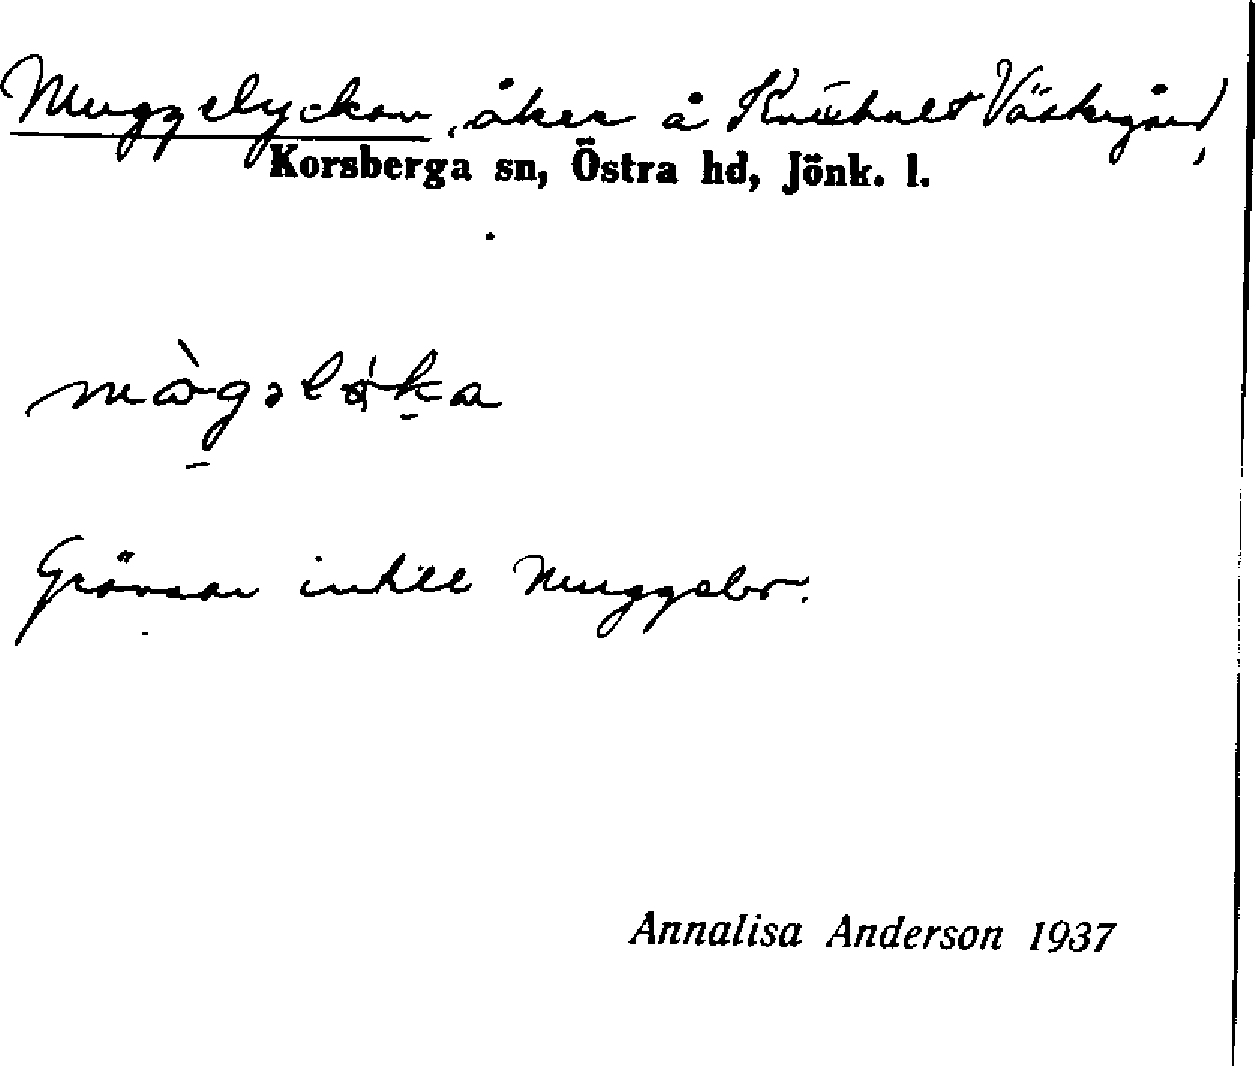 Muggelyckan, åker å Västergård,
Korsberga sn, Östra hd, Jönk. l.
Gränsar intill Muggebo.
Annalisa Anderson 1937